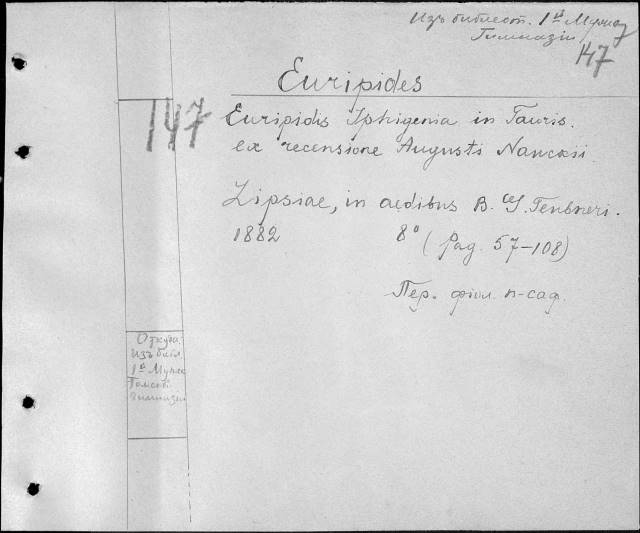 Изъ библіот. 1й Мужск
Гимназіи
147
Euripides
147
Euripidis Iphigenia in Tauris.
ex recensione Augusti Nauckii.
Lipsiae, in aedibus B. G. Teubneri.
1882 8° (pag. 57–108)
Пер. фил. п-сад.
Откуда.
Изъ библ.
1й Мужск
Томской
Гимназіи